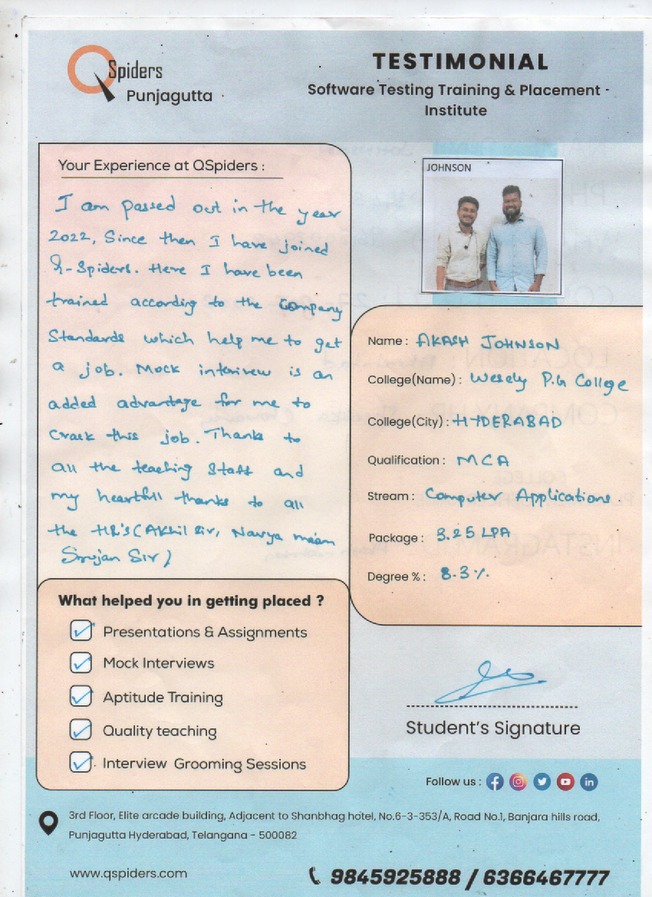 QSpiders
Punjagutta
TESTIMONIAL
Software Testing Training & Placement
Institute
Your Experience at QSpiders :
I am passed out in the year
2022, Since then I have joined
Q-Spiders. Here I have been
trained according to the company
Standards which help me to get
a job. Mock interview is an
added advantage for me to
crack this job. Thanks to
all the teaching Staff and
my heartfull thanks to all
the HR's (Akhil Sir, Navya maam
Srujan Sir)
JOHNSON
Name : AKASH JOHNSON
College(Name) : Wesely P.G College
College(City) : HYDERABAD
Qualification : MCA
Stream : Computer Applications.
Package : 3.25 LPA
Degree % : 8.3%
What helped you in getting placed ?
Presentations & Assignments
Mock Interviews
Aptitude Training
Quality teaching
Interview Grooming Sessions
Student's Signature
Follow us :
3rd Floor, Elite arcade building, Adjacent to Shanbhag hotel, No.6-3-353/A, Road No.1, Banjara hills road,
Punjagutta Hyderabad, Telangana - 500082
www.qspiders.com
9845925888 / 6366467777